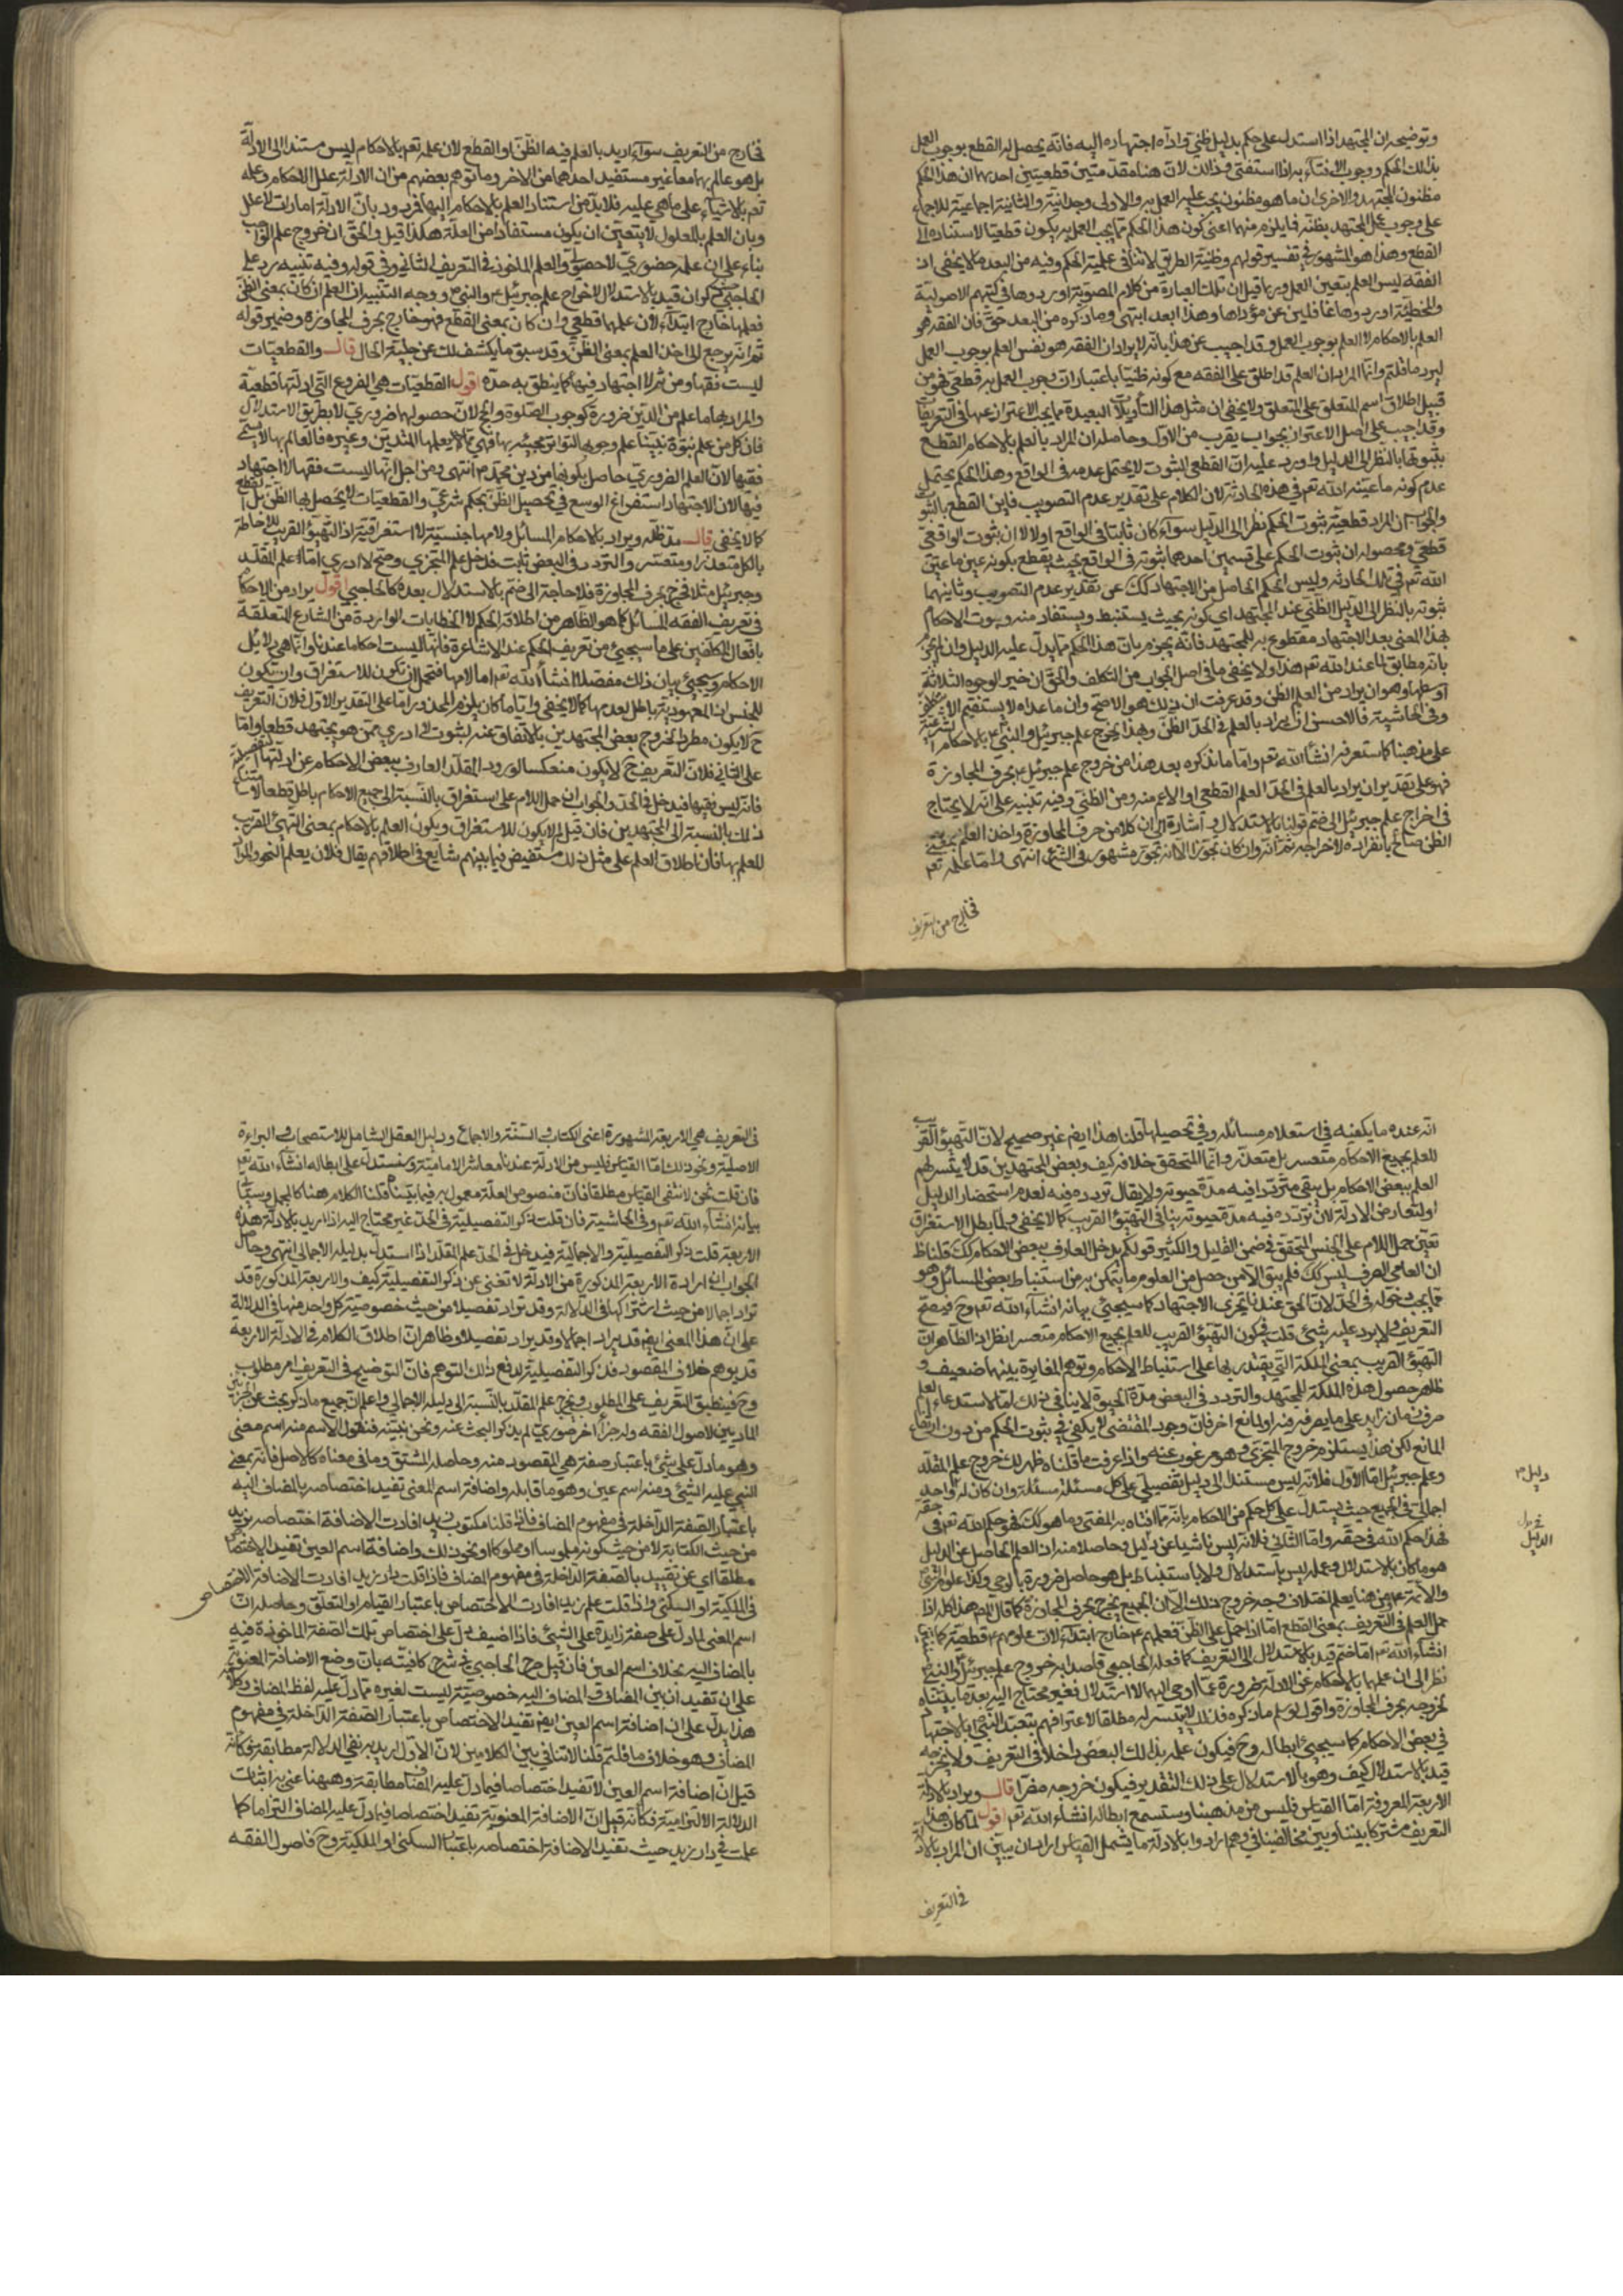 وتوضيحه ان المجتهد اذا استدل على حكم بدليل ظني واداه اجتهاده اليه فانه يحصل له القطع بوجوب العمل
بذلك الحكم ووجوب الافتاء به اذا استفتى وذلك لان هنا مقدمتين قطعيتين احدهما ان هذا الحكم
مظنون للمجتهد والاخرى ان ما هو مظنون يجب عليه العمل به والاولى وجدانية والثانية اجماعية للاجماع
على وجوب عمل المجتهد بظنه فايلزم منهما اعنى كون هذا الحكم مما يجب العمل به يكون قطعيا لاستناده الى
القطع وهذا هو المشهور في تفسير قولهم وظنية الطريق لا تنافي علمية الحكم وفيه من البعد ما لا يخفى اذ
الفقه ليس العلم بتعين العمل وربما قيل ان تلك العبارة من كلام المصوبة اوردوها في كتبهم الاصولية
والمخطئة اوردوها غافلين عن مؤداها وهذا ابعد انتهى وما ذكره من البعد حق فان الفقه هو
العلم بالاحكام لا العلم بوجوب العمل وقد اجيب عن هذا بانه لا يراد ان الفقه هو نفس العلم بوجوب العمل
ليرد ما قلتم وانما المراد ان العلم قد اطلق على الفقه مع كونه ظنيا باعتبار ان وجوب العمل به قطعي فهو من
قبيل اطلاق اسم المتعلق على المتعلق ولا يخفى ان مثل هذا التأويلات البعيدة مما يجب الاحتراز عنها في التعريفات
وقد اجيب على اصل الاعتراض بجواب يقرب من الاول وحاصله ان المراد بالعلم بالاحكام القطع
بثبوتها بالنظر الى الدليل واورد عليه ان القطعى الثبوت لا يحتمل عدمه في الواقع وهذا الحكم يحتمل
عدم كونه ما عينه الله تعم في هذه الحادثة لان الكلام على تقدير عدم التصويب فاين القطع بالثبوت
والجواب ان المراد قطعية ثبوت الحكم نظرا الى الدليل سواء كان ثابتا في الواقع او لا لا ان ثبوت الواقعي
قطعي ومحصوله ان ثبوت الحكم على قسمين احدهما ثبوته في الواقع بحيث يقطع بكونه عين ما عين
الله تعم في تلك الحادثة وليس الحكم الحاصل من الاجتهاد كذلك عن تقدير عدم التصويب وثانيهما
ثبوته بالنظر الى الدليل الظني عند المجتهد اي كونه بحيث يستنبط ويستفاد منه وثبوت الاحكام
بهذا المعنى بعد الاجتهاد مقطوع به للمجتهد فانه يجزم بان هذا الحكم مما يدل عليه الدليل وان لم يجزم
بانه مطابق لما عند الله تعم هذا ولا يخفى ما في اصل الجواب من التكلف والحق ان خير الوجوه الثلاثة
اوسطها وهو ان يراد من العلم الظن وقد عرفت ان ذلك هو الاصح وان ما عداه لا يستقيم الا
وفي الحاشية فالاحسن ان يراد بالعلم في الحد الظن وبهذا يخرج علم جبرئيل والنبي ع بالاحكام الشرعية
على مذهبنا كما ستعرفه انشاء الله تعم واما ما نذكره بعد هذا من خروج علم جبرئيل ع بحرف المجاوزة
فهو على تقدير ان يراد بالعلم في الحد العلم القطعي او الاعم منه ومن الظني وفيه تنبيه على انه لا يحتاج
في اخراج علم جبرئيل الى ضم قولنا بالاستدلال واشارة الى ان كلا من حرف المجاوزة واخذ العلم بمعنى
الظن صالح بانفراده لاخراجه ثم انه وان كان تجوزا الا انه تجوز مشهور في الشرع انتهى واما علمه تعم
فخارج من التعريف
فخارج من التعريف سواء اريد بالعلم فيه الظن او القطع لان علمه تعم بالاحكام ليس مستندا الى الادلة
بل هو عالم بهما معا غير مستفيد احدهما من الاخر وما توهم بعضهم من ان الادلة علل الاحكام وعلمه
تعم بالاشياء على ما هي عليه فلا بد من استناد العلم بالاحكام اليها فمردود بان الادلة امارات لا علل
وبان العلم بالمعلول لا يتعين ان يكون مستفادا من العلة هكذا قيل والحق ان خروج علم الواجب
بناء على ان علمه حضوري لا حصولي والعلم المأخوذ في التعريف الثاني وفي قوله وفيه تنبيه رد على
الحاجبي حيث ذكر ان قيد بالاستدلال لاخراج علم جبرئيل ع والنبي ص ووجه التنبيه ان العلم ان كان بمعنى الظن
فعلمها خارج ابتداء لان علمها قطعي وان كان بمعنى القطع فهو خارج بحرف المجاوزة وضمير قوله
ثم انه يرجع الى اخذ العلم بمعنى الظن وقد سبق ما يكشف لك عن جلية الحال قال والقطعيات
ليست فقها ومن ثم لا اجتهاد فيها كما ينطق به حده اقول القطعيات هي الفروع التي ادلتها قطعية
والمراد بها ما علم من الدين ضرورة كوجوب الصلوة والحج لان حصولها ضروري لا بطريق الاستدلال
فان كل من علم نبوة نبينا علم وجوبها لتواتر مجيئه بها فهي مما يعلمها المتدين وغيره فالعالم بها لا يسمى
فقيها لان العلم الضروري حاصل بكونها من دين محمد ص انتهى ومن اجل انها ليست فقها لا اجتهاد
فيها لان الاجتهاد استفراغ الوسع في تحصيل الظن بحكم شرعي والقطعيات لا يحصل بها الظن بل القطع
كما لا يخفى قال مد ظله ويراد بالاحكام المسائل ولامها جنسية لا استغراقية اذ التهيؤ القريب للاحاطة
بالكل متعذر او متعسر والتردد في البعض ثابت فدخل علم المتجزى وصح لا ادري اما علم المقلد
وجبرئيل مثلا فخرج بحرف المجاوزة فلا حاجة الى ضم بالاستدلال بعده كالحاجبي اقول يراد من الاحكام
في تعريف الفقه المسائل كما هو الظاهر من اطلاق الحكم لا الخطابات الواردة من الشارع المتعلقة
بافعال المكلفين على ما سيجيئ من تعريف الحكم عند الاشاعرة فانها ليست احكاما عندنا وانما هي دلائل
الاحكام وسيجيئ بيان ذلك مفصلا انشاء الله تعم اما لامها فتحتمل ان تكون للاستغراق وان تكون
للجنس اذ المعهودية باطل لعدمها كما لا يخفى وايا ما كان يلزم المحذور اما على التقدير الاول فلان التعريف
ح لا يكون مطردا لخروج بعض المجتهدين بالاتفاق عنه لثبوت لا ادري ممن هو مجتهد قطعا واما
على الثاني فلان التعريف ح لا يكون منعكسا لورود المقلد العارف ببعض الاحكام عن ادلتها التفصيلية
فانه ليس فقيها فيدخل في الحد والجواب ان حمل اللام على استغراق بالنسبة الى جميع الاحكام باطل قطعا لاستلزام
ذلك بالنسبة الى المجتهدين فان قيل لم لا يكون للاستغراق ويكون العلم بالاحكام بمعنى التهيئ القريب
للعلم بها فان اطلاق العلم على مثل ذلك مستفيض فيما بينهم شايع في اطلاقهم يقال فلان يعلم النحو والمراد
انه عنده ما يكفيه في استعلام مسائله وفي تحصيلها قلنا هذا ايضم غير صحيح لان التهيؤ القريب
للعلم بجميع الاحكام متعسر بل متعذر وانما المتحقق خلافه كيف وبعض المجتهدين قد لا يتيسر لهم
العلم ببعض الاحكام بل يبقى مترددا فيه مدة حيوته ولا يقال تردده فيه لعدم استحضار الدليل
او لتعارض الادلة لان تردده فيه مدة حيوته ينافي التهيؤ القريب كما لا يخفى ولما بطل الاستغراق
تعين حمل اللام على الجنس المتحقق في ضمن القليل والكثير قولكم يدخل العارف ببعض الاحكام كك قلنا ظ
ان العامي الصرف ليس كك فلم يبق الا من حصل من العلوم ما يتمكن به من استنباط بعض المسائل وهو
مما يجب دخوله في الحد لان الحق عندنا تجزى الاجتهاد كما سيجيئ بيانه انشاء الله تعم وح فيصح
التعريف ولا يرد عليه شيئ قلت في كون التهيؤ القريب للعلم بجميع الاحكام متعسر انظر اذ الظاهر ان
التهيؤ القريب بمعنى الملكة التي يقتدر بها على استنباط الاحكام وتوهم المغايرة بينها ضعيف و
ظاهر حصول هذه الملكة للمجتهد والتردد في البعض مدة الحيوة لا ينافي ذلك اما لاستدعاء العلم
صرف زمان زايد على ما يصرفه فيه او لمانع اخر فان وجود المقتضى لا يكفي في ثبوت الحكم من دون ارتفاع
المانع لكن هذا يستلزم خروج المتجزى وهو مرغوب عنه واذا عرفت ما قلناه ظهر لك خروج علم المقلد
وعلم جبرئيل اما الاول فلانه ليس مستندا الى دليل تفصيلي على كل مسئلة مسئلة وان كان له واحد
اجمالي في الجميع حيث يستدل على كل حكم من الاحكام بانه مما افتاه به المفتي وما هو كك فهو حكم الله تعم في حقه
فهذا حكم الله في حقه واما الثاني فلانه ليس ناشيا عن دليل وحاصلا منه اذ العلم الحاصل عن الدليل
هو ما كان بالاستدلال وعمله ليس باستدلال ولا باستنباط بل هو حاصل ضرورة بالوحي وكذا علوم النبي
والائمة ع ومن هنا يعلم اختلاف وجه خروج ذلك الا ان الجميع يخرج بحرف المجاوزة كما قال الم هذا كله اذا
حمل العلم في التعريف بمعنى القطع اما اذا حمل على الظن فعلمهم ع خارج ابتداء لان علومهم ع قطعية كما سيجيئ
انشاء الله تعم اما ضم قيد بالاستدلال الى التعريف كما فعله الحاجبي قاصدا به خروج علم جبرئيل والنبي ع
نظرا الى ان علمها بالاحكام عن الادلة ضرورة مما اوحى اليهما لا استدلال فغير محتاج اليه بعد ما بيناه
لخروجه بحرف المجاوزة واقول لو سلم ما ذكره فذلك لا يتيسر له مطلقا لاعترافهم بتعبد النبي ص بالاجتهاد
في بعض الاحكام كما سيجيئ ابطاله وح فيكون علمه بذلك البعض داخلا في التعريف ولا يخرجه
قيد بالاستدلال كيف وهو بالاستدلال على ذلك التقدير فيكون خروجه مضرا قال ويراد بالادلة
الاربعة المعروفة اما القياس فليس من مذهبنا وستسمع ابطاله انشاء الله تعم اقول لما كان هذا
التعريف مشتركا بيننا وبين مخالفينا وهم ارادوا بالادلة ما يشمل القياس اراد ان يبين ان المراد بالادلة
في التعريف
دليل م
الدليل
في التعريف هي الاربعة المشهورة اعنى الكتاب والسنة والاجماع ودليل العقل الشامل للاستصحاب والبراءة
الاصلية ونحو ذلك اما القياس فليس من الادلة عندنا معاشر الامامية وسنستدل على ابطاله انشاء الله تعم
فان قلت نحن لا ننفى القياس مطلقا فان منصوص العلة معمول به فيما بيننا قلنا الكلام هنا كالمجمل وسيأتي
بيانه انشاء الله تعم وفي الحاشية فان قلت ذكر التفصيلية في الحد غير محتاج اليه اذا اريد بالادلة هذه
الاربعة قلت ذكر التفصيلية والاجمالية فيدخل في الحد علم المقلد اذا استدل بدليله الاجمالي انتهى وحاصل
الجواب ان ارادة الاربعة المذكورة من الادلة لا تغنى عن ذكر التفصيلية كيف والاربعة المذكورة قد
تراد اجمالا من حيث اشتراكها في الدلالة وقد تراد تفصيلا من حيث خصوصية كل واحد منها في الدلالة
على ان هذا المعنى ايضم قد يراد اجمالا وقد يراد تفصيلا وظاهر ان اطلاق الكلام في الادلة الاربعة
قد يوهم خلاف المقصود فذكر التفصيلية لدفع ذلك التوهم فان التوضيح في التعريف امر مطلوب
وح فينطبق التعريف على المطلوب ويخرج علم المقلد بالنسبة الى دليله الاجمالي واعلم ان جميع ما ذكر بحث عن الجزئين
الماديين لاصول الفقه وله جزء اخر صوري لم يذكر البحث عنه ونحن نبينه فنقول الاسم منه اسم معنى
وهو ما دل على شيئ باعتبار صفة هي المقصود منه وحاصله المشتق وما في معناه كالاصل فانه بمعنى
المبني عليه الشيئ ومنه اسم عين وهو ما قابله واضافة اسم المعنى تفيد اختصاصه بالمضاف اليه
باعتبار الصفة الداخلة في مفهوم المضاف فاذا قلنا مكتوب زيد افادت الاضافة اختصاصه بزيد
من حيث الكتابة لا من حيث كونه ملبوسا او مملوكا او نحو ذلك واضافة اسم العين تفيد الاختصاص
مطلقا اي عن تقييد بالصفة الداخلة في مفهوم المضاف فاذا قلت دار زيد افادت الاضافة الاختصاص
في الملكية او السكنى واذ قلت علم زيد افادت الاختصاص باعتبار القيام او التعلق وحاصله ان
اسم المعنى لما دل على صفة زايدة على الشيئ فاذا اضيف دل على اختصاص تلك الصفة المأخوذة فيه
بالمضاف اليه بخلاف اسم العين فان قيل صرح الحاجبي في شرح كافيته بان وضع الاضافة المعنوية
على ان تفيد ان بين المضاف والمضاف اليه خصوصية ليست لغيره مما دل عليه لفظ المضاف وكلامه
هذا يدل على ان اضافة اسم العين ايضم تفيد الاختصاص باعتبار الصفة الداخلة في مفهوم
المضاف وهو خلاف ما قلتم قلنا لا تنافي بين الكلامين لان الاول اريد به نفي الدلالة مطابقة فكانه
قيل ان اضافة اسم العين لا تفيد اختصاصا فيما دل عليه المضاف مطابقة وهيهنا عنى به اثبات
الدلالة الالتزامية فكانه قيل ان الاضافة المعنوية تفيد اختصاصا فيما دل عليه المضاف التزاما كما
علمت في دار زيد حيث تفيد الاضافة اختصاصه باعتبار السكنى او الملكية وح فاصول الفقه